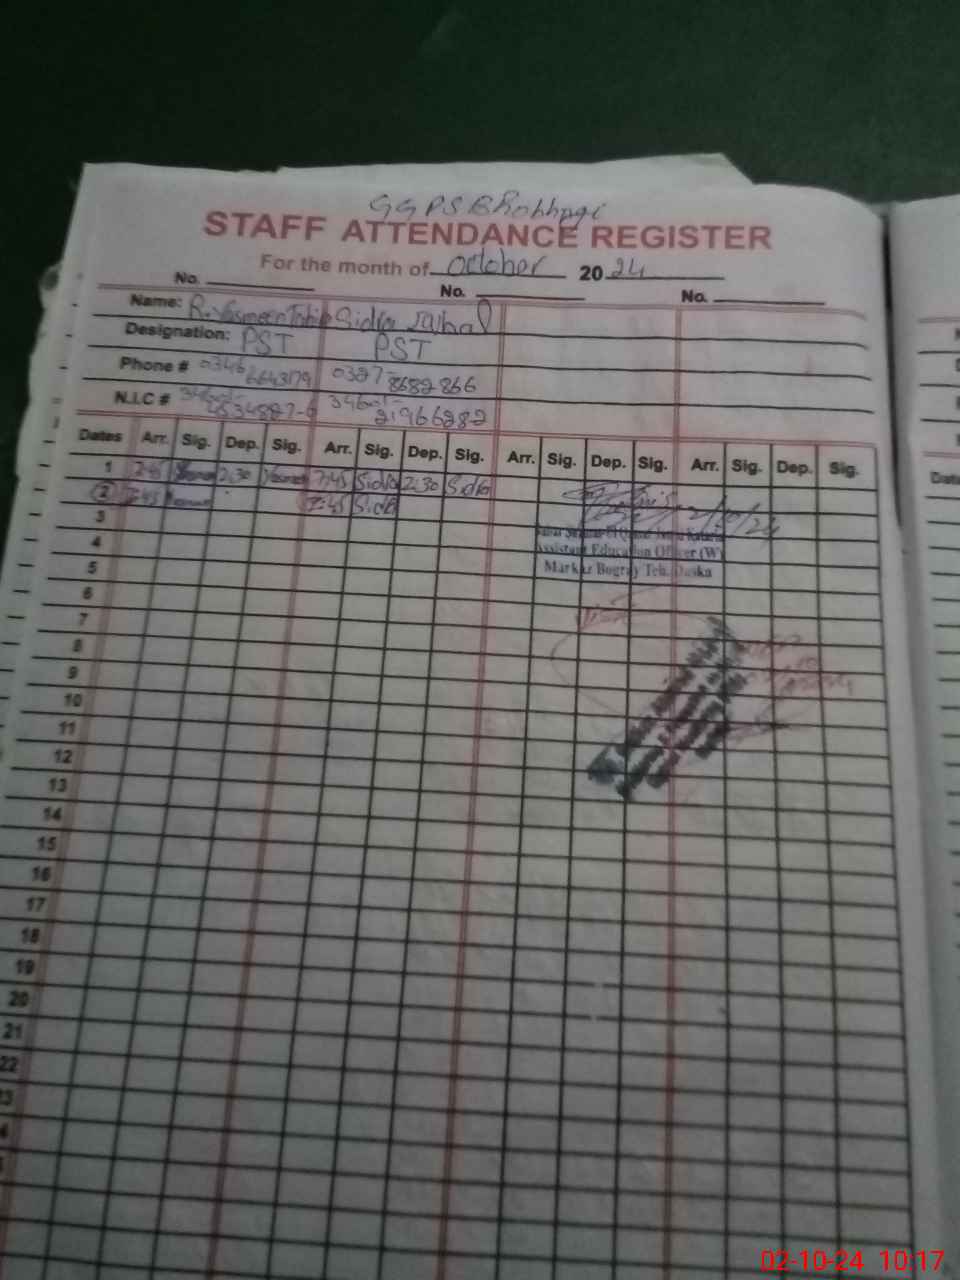 STAFF ATTENDANCE REGISTER
For the month of October 2024
No. No. No.
Name: R. Yasmeen Tahir Sidra Iqbal
Designation: PST PST
Phone # 0346 6643179 0327-8682866
N.I.C #
Dates Arr. Sig. Dep. Sig. Arr. Sig. Dep. Sig. Arr. Sig. Dep. Sig. Arr. Sig. Dep. Sig.
1 7:45 Yasmeen 2:30 Yasmeen 7:45 Sidra 2:30 Sidra
2 7:45 Yasmeen 7:45 Sidra
2/10/24
3
4
Assistant Education Officer (W)
5
Markaz Bogray Teh. Daska
6
7
8
9
10
11
12
13
14
15
16
17
18
19
20
21
22
02-10-24 10:17